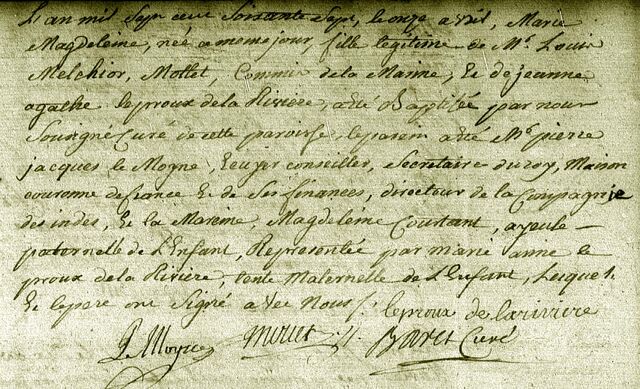 L'an mil Sept cent Soixante Sept, le onze avril, Marie
Magdeleine, née ce meme jour, fille legitime de Mr. Louis
Melchior, Mottet, Commis de la Marine, Et de jeanne
agathe leproux de la Riviere, a été Baptisée par nous
Soussigné Curé de cette paroisse, le parein a été Mr. pierre
jacques le Moyne, Ecuyer conseiller, Secretaire du roy, Maison
couronne de france Et de Ses finances, directeur de la Compagnie
des indes, Et la Mareine, Magdeleine Coutant, ayeule
paternelle de L'Enfant, Representée par marie anne le
proux de la Riviere, tente Maternelle de L'Enfant, Lesquels
Et le pere ont Signé avec Nous /. leproux de lariviere
Le Moyne Mottet /. Curé